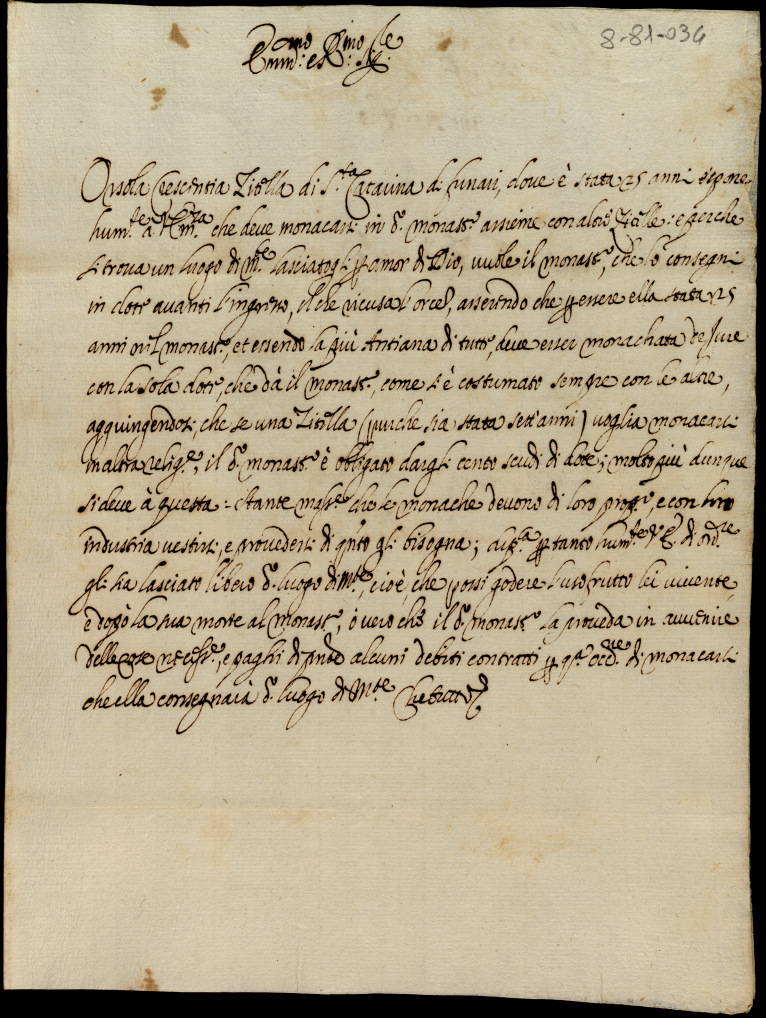 8-81-034
Em.mo e R.mo Sig.re
Orsola Crescentia Zitella di S.ta Catarina di Funari, dove è stata 25 anni espone
hum.te a V. Em.za che deve monacarsi in d.o monast.o assieme con altre Zitelle: e perche
si trova un luogo di M.te lasciatogli p amor di Dio, vuole il monast.o, che lo consegni
in dote avanti l'ingresso, il che ricusa l'orce, asserendo che p essere ella stata 25
anni nel monast.o, et essendo la più Antiana di tutte, deve esser monachata de Jure
con la sola dote, che dà il monast.o, come s'è costumato sempre con le altre,
aggiungendosi, che se una Zitella (purche sia stata sett'anni) voglia monacarsi
in altra relig.e, il d.o monast.o è obligato dargli cento scudi di dote; molto più dunque
si deve à questa: stante mass.e che le monache devono di loro prop.o, e con loro
industria vestirsi, e provedersi di q.nto gli bisogna; sup.ca p tanto hum.te V. E. di ord.re
gli sia lasciato libero d.o luogo di M.te, cioè, che possi godere l'usofrutto lei vivente,
e dopò la sua morte al monast.o, ò vero che il d.o monast.o la proveda in avvenire
delle cose necess.e, e paghi di p.nte alcuni debiti contratti p q.a occ.ne di monacarsi
che ella consegnarà d.o luogo di M.te Che